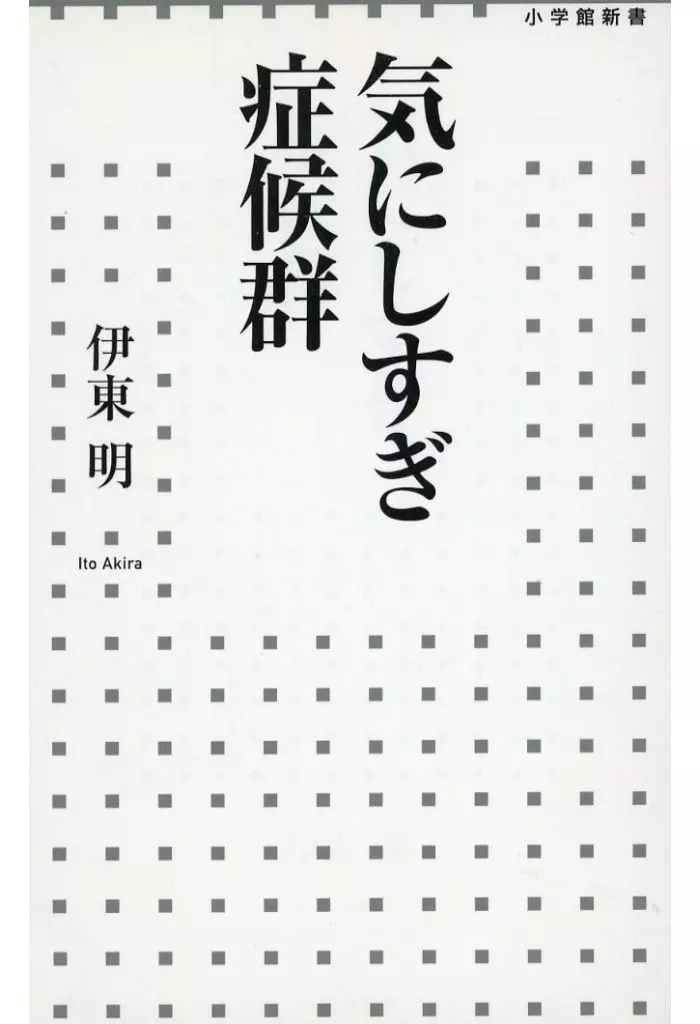 小学館新書
気にしすぎ
症候群
伊東 明
Ito Akira